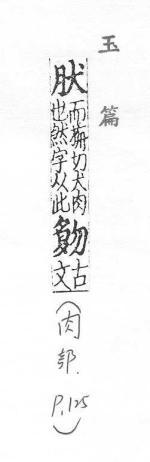 玉篇
肰
而旃切犬肉
也然字从此
古
文
（肉部.
P.125）